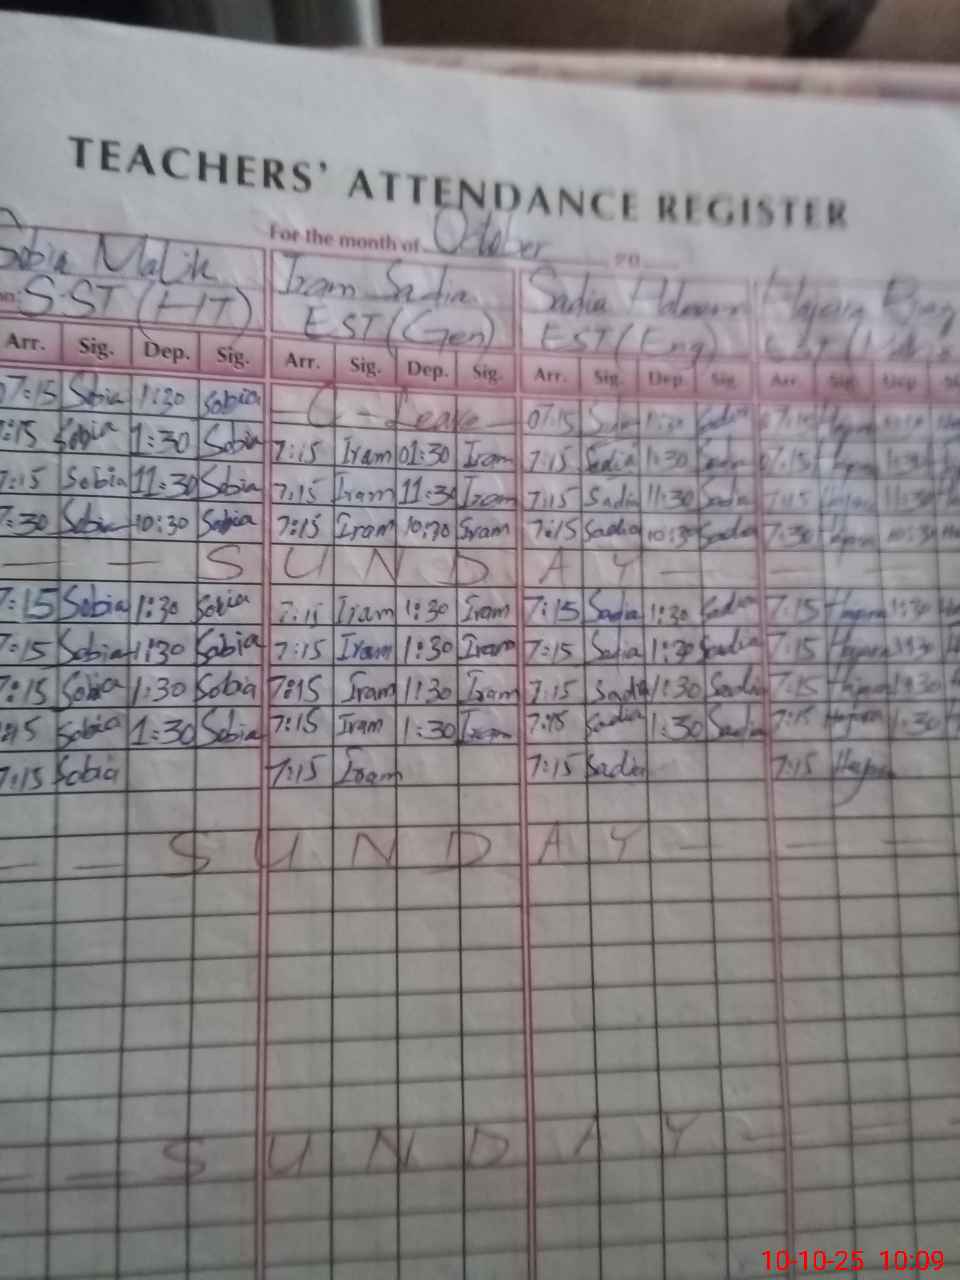 TEACHERS' ATTENDANCE REGISTER
For the month of October 20
Sobia Malik Iram Sadia Sadia
SST (HT) EST (Gen) EST (Eng)
Arr. Sig. Dep. Sig. Arr. Sig. Dep. Sig. Arr. Sig. Dep. Sig. Arr. Sig. Dep.
07:15 Sobia 1:30 Sobia - C - Leave - 07:15 Sadia 1:30 Sadia
:15 Sobia 1:30 Sobia 7:15 Iram 01:30 Iram 7:15 Sadia 1:30 Sadia 07:15 Hajara 1:30
7:15 Sobia 11:30 Sobia 7:15 Iram 11:30 Iram 7:15 Sadia 11:30 Sadia 7:15 Hajara 11:30
7:30 Sobia 10:30 Sobia 7:15 Iram 10:30 Iram 7:15 Sadia 10:30 Sadia 7:30 Hajara 10:30
— — S U N D A Y — — —
7:15 Sobia 1:30 Sobia 7:15 Iram 1:30 Iram 7:15 Sadia 1:30 Sadia 7:15 Hajara 1:30
7:15 Sobia 1:30 Sobia 7:15 Iram 1:30 Iram 7:15 Sadia 1:30 Sadia 7:15 Hajara 1:30
7:15 Sobia 1:30 Sobia 7:15 Iram 1:30 Iram 7:15 Sadia 1:30 Sadia 7:15 Hajara 1:30
:15 Sobia 1:30 Sobia 7:15 Iram 1:30 Iram 7:15 Sadia 1:30 Sadia 7:15 Hajara 1:30
7:15 Sobia 7:15 Iram 7:15 Sadia 7:15 Hajara
— — S U N D A Y — — —
— — S U N D A Y — — —
10-10-25 10:09